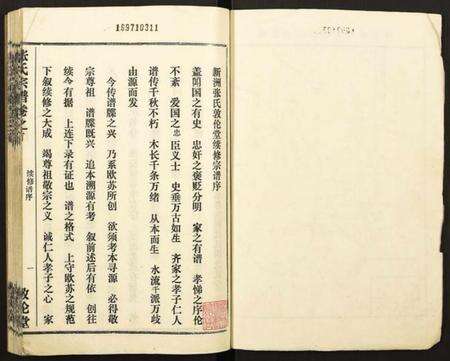 159710311
新洲张氏敦伦堂续修宗谱序
盖闻国之有史 忠奸之褒贬分明 家之有谱 孝悌之序伦
不紊 爱国之忠臣义士 史垂万古如生 齐家之孝子仁人
谱传千秋不朽 木长千条万绪 从本而生 水流千派万歧
由源而发
今传谱牒之兴 乃系欧苏所创 欲须考本寻源 必得敬
宗尊祖 谱牒既兴 追本溯源有考 叙前述后有依 创往
续今有据 上连下录有证也 谱之格式 上守欧苏之规范
下叙续修之大成 竭尊祖敬宗之义 诚仁人孝子之心 家
张氏宗谱卷之
续修谱序
一
敦伦堂